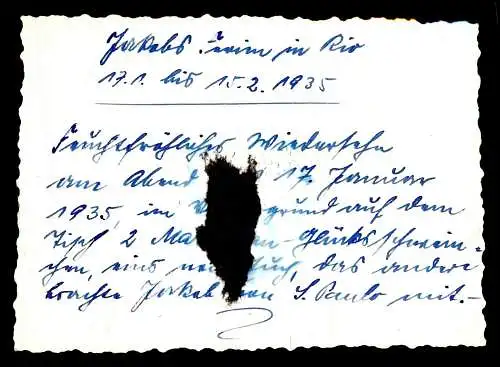 Jakobs Ferien in Rio
17.1. bis 15.2.1935
Feuchtfröhliches Wiedersehn
am Abend 17. Januar
1935, im grund auf dem
Tisch 2 Glücksschwein-
chen, eins das andere
brachte Jakob von S. Paulo mit.-